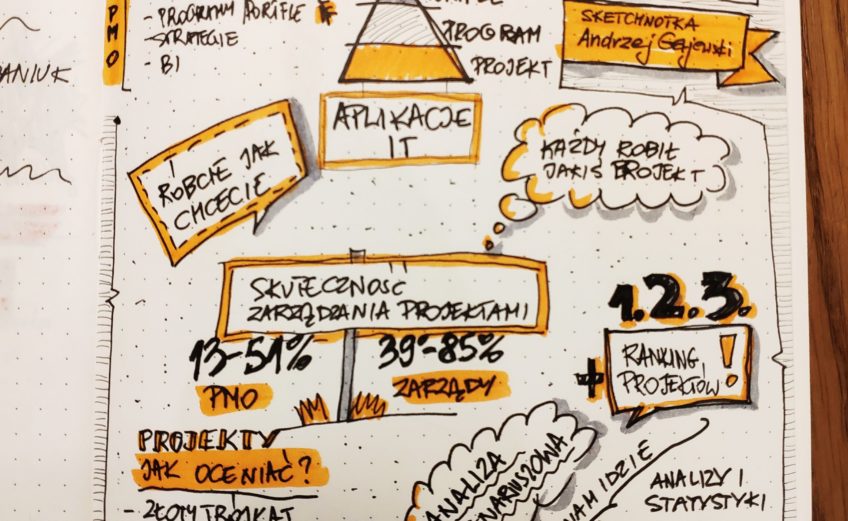 PMO
- PROGRAM PORTFLE
- STRATEGIE
- BI
PROGRAM
PROJEKT
SKETCHNOTKA
Andrzej Gajewski
ANIUK
APLIKACJE
IT
I
ROBCIE JAK
CHCECIE
KAŻDY ROBIŁ
JAKIŚ PROJEKT
SKUTECZNOŚĆ
ZARZĄDZANIA PROJEKTAMI
13-51%
PMO
39-85%
ZARZĄDY
1.2.3.
+
RANKING !
PROJEKTÓW
PROJEKTY
JAK OCENIAĆ?
- ZŁOTY TRÓJKĄT
ANALIZA
NAM IDZIE
ANALIZY I
STATYSTYKI